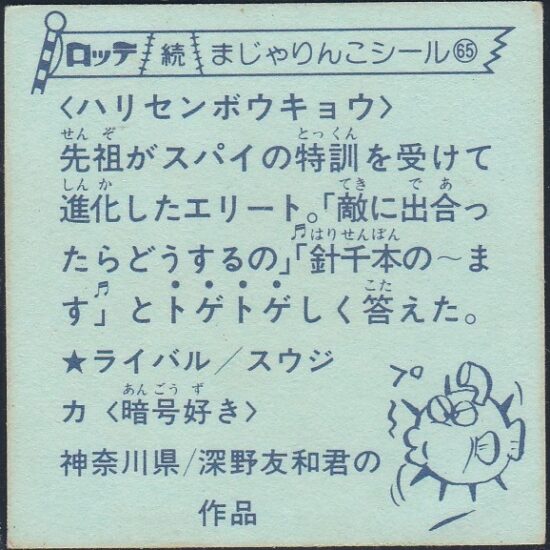 ロッテ 続 まじゃりんこシール65
〈ハリセンボウキョウ〉
せんぞ とっくん
先祖がスパイの特訓を受けて
しんか てき であ
進化したエリート。「敵に出合っ
♬はりせんぼん
たらどうするの」「針千本の〜ま
♬ こた
す」とトゲトゲしく答えた。
★ライバル/スウジ
あんごうず
カ〈暗号好き〉
神奈川県/深野友和君の
作品
プ